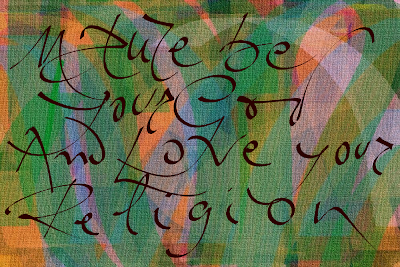 Nature be
Your God
And Love your
Religion